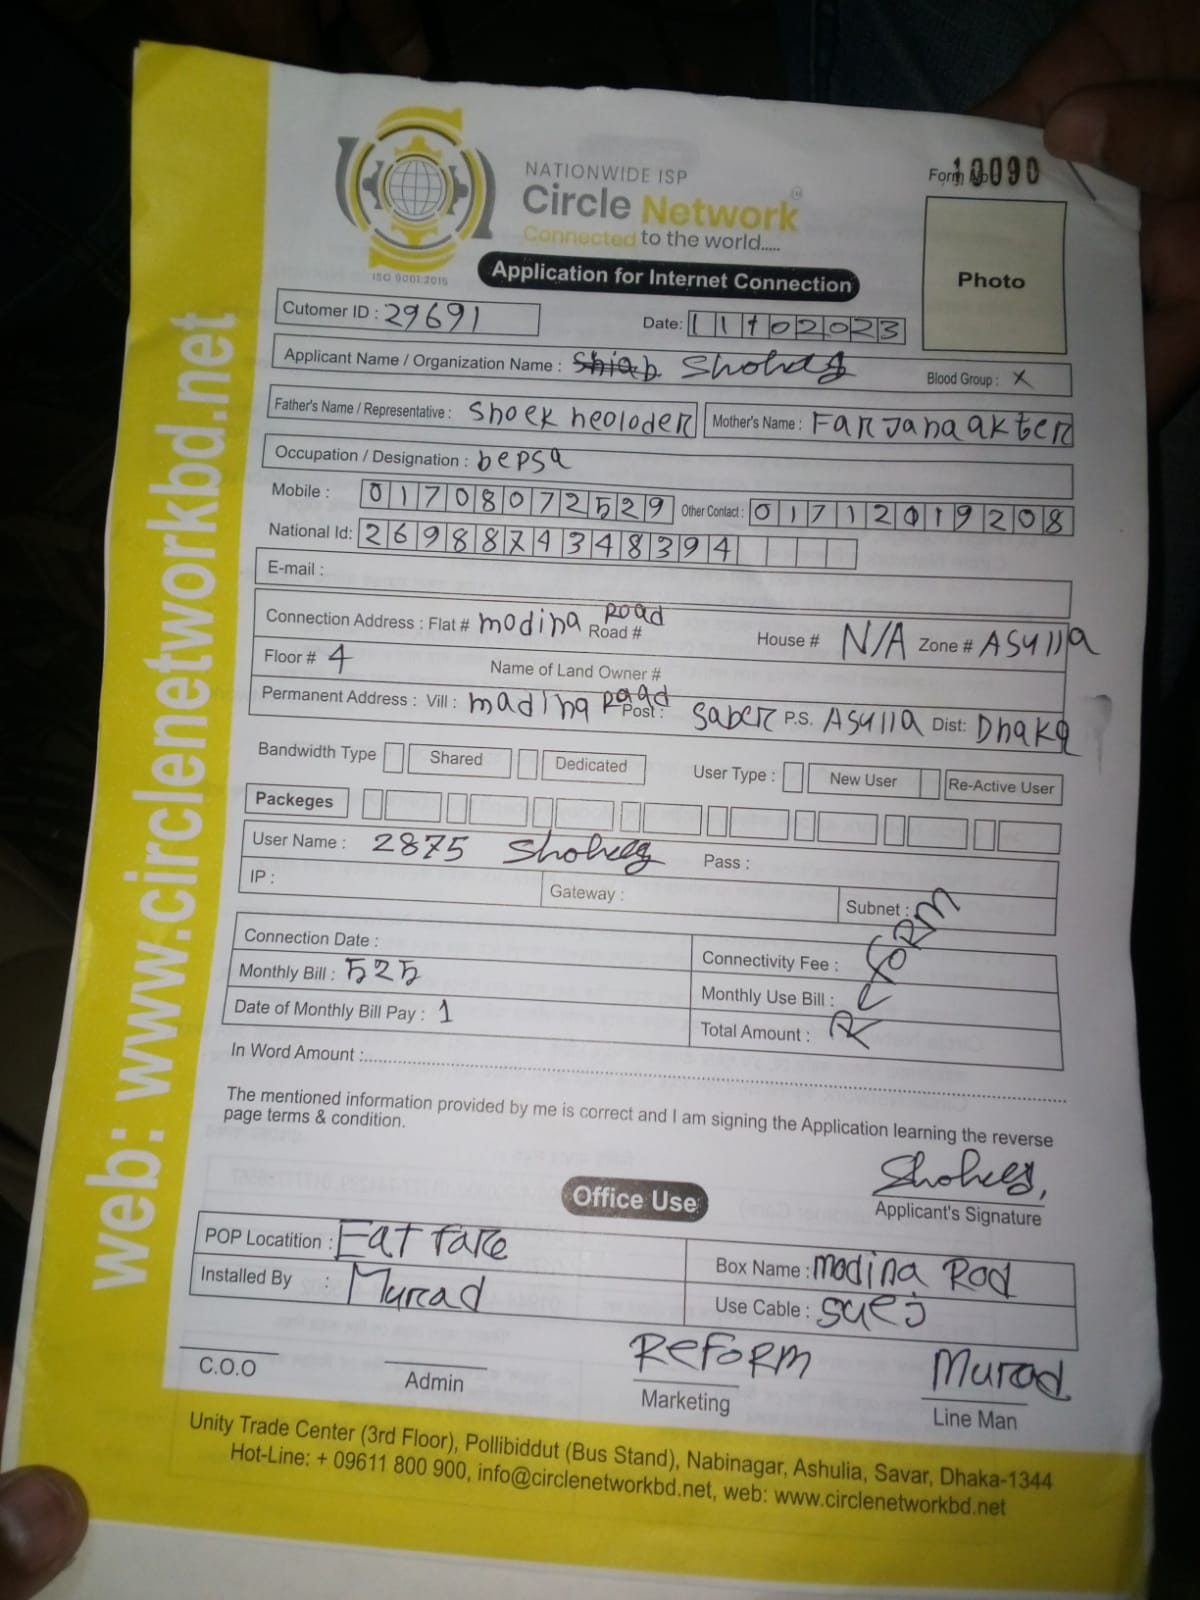 web: www.circlenetworkbd.net
NATIONWIDE ISP
Circle Network
Connected to the world.....
ISO 9001:2015
Form No 10090
Photo
Application for Internet Connection
Cutomer ID : 29691
Date: 11 02 2023
Applicant Name / Organization Name : Shiab
Blood Group : X
Father's Name / Representative : Shoek heoloder Mother's Name : Farjana akter
Occupation / Designation : bepsa
Mobile : 01708072529 Other Contact : 01712019208
National Id: 2698874348394
E-mail :
Connection Address : Flat # modina Road Road # House # N/A Zone # Asulla
Floor # 4 Name of Land Owner #
Permanent Address : Vill : madina Post : Saber P.S. Asulla Dist: Dhaka
Bandwidth Type Shared Dedicated User Type : New User Re-Active User
Packeges
User Name : 2875 Pass :
IP : Gateway : Subnet :
Connection Date : Connectivity Fee :
Monthly Bill : 525 Monthly Use Bill :
Date of Monthly Bill Pay : 1 Total Amount :
Reform
In Word Amount :
The mentioned information provided by me is correct and I am signing the Application learning the reverse
page terms & condition.
Applicant's Signature
Office Use
POP Locatition : Eat fare Box Name : modina Rod
Installed By : Murad Use Cable :
C.O.O Admin Reform Marketing Murad Line Man
Unity Trade Center (3rd Floor), Pollibiddut (Bus Stand), Nabinagar, Ashulia, Savar, Dhaka-1344
Hot-Line: + 09611 800 900, info@circlenetworkbd.net, web: www.circlenetworkbd.net